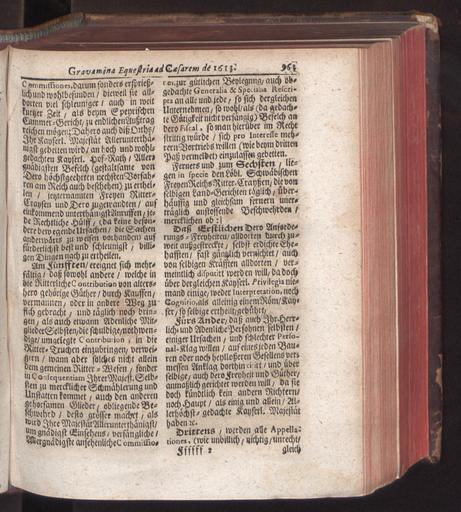 Gravamina Equestria ad Cæsarem de 1613. 963
Commissiones, darum sonders ersprieß-
lich und wohlbefunden / dieweil sie all-
dorten viel schleuniger / auch in weit
kurtzer Zeit / als beym Speyrischen
Cammer-Gericht / zu ehrlichem Außtrag
reichen mögen; Dahero auch diß Orths /
Ihr Kayserl. Majestät Allerunterthä-
nigst gebetten wird / an hoch und wohl-
gedachten Kayserl. Hof-Rath / Aller-
gnädigsten Befelch (gestaltsame von
Dero höchstgeehrten nechsten Vorfah-
ren am Reich auch beschehen) zu erthei-
len / jeztermannten Freyen Ritter-
Craysen und Dero zugewandten / auf
einkommend unterthänigst Anruffen / je-
de Rechtliche Hülff / (da keine beson-
dere bewegende Ursachen / die Sachen
anderwärts zu weisen vorhanden) auf
förderlichst best und schleunigst / billi-
gen Dingen nach zu ertheilen.
Am Fünfften / ereignet sich mehr-
fältig / daß sowohl andere / welche in
die Ritterliche Contribution von alters-
hero gehörige Güther / durch Kauffen /
vermannen / oder in andere Weg zu
sich gebracht / und täglich noch brin-
gen / als auch etwann Adenliche Mit-
glieder Selbsten / die schuldige / nothwen-
dige / umgelegte Contribution, in die
Ritter-Truchen einzubringen / verwei-
gern / wann aber solches nicht allein
dem gemeinen Ritter-Wesen / sonder
in Consequentiam Ihrer Majest. Selb-
sten zu mercklicher Schmählerung und
Unstatten kommet / auch den anderen
gehorsamen Glieder / obliegende Be-
schwehrd / desto grösser machet / als
wird Ihre Majestät Allerunterthänigst /
um gnädigst Einsehens / verfängliche /
Allergnädigste ansehenliche Commissio-
nes, zur gütlichen Beylegung / auch ob-
gedachte Generalia & Specialia Rescri-
pta an alle und jede / so sich dergleichen
Unternehmen / so wohl als (da gedach-
te Gütigkeit nicht verfängig) Befelch an
dero Fiscal, so man hierüber im Recht
strittig würde / sich pro Interesse meh-
rern Vortriebs willen (wie beym dritten
Paß vermeldet) einzulassen gebetten.
Ferners und zum Sechsten / lie-
gen in specie den Löbl. Schwäbischen
Freyen Reichs-Ritter-Crayßen / die von
selbigen Land-Gerichten täglich / über-
häuffig und gleichsam fernern uner-
träglich anstossende Beschwehrden /
mercklichen ob:
Daß Erstlichen Dero Anforde-
rungs-Freyheiten / alldorten durch zu-
weit außgestreckte / selbst erdichte Ehe-
hafften / fast gänzlich vernichtet / auch
von selbigen Kräfften alldorten / ver-
meintlich disputirt werden will / da doch
über dergleichen Kayserl. Privilegia nie-
mand einige / weder Interpretation, noch
Cognition, als alleinig einem Röm. Kay-
ser / so selbige ertheilt / gebühret /
Fürs Ander / daß auch Ihr Herr-
lich- und Adenliche Persohnen selbsten /
einiger Ursachen / und schlechter Perso-
nal-Klag willen / auf eines jeden Bau-
ren oder noch heylloseren Gesellens ver-
messen Anklag dorthin citirt / und über
selbige / auch dero Freyheit und Güther /
anmaßlich gerichtet werden will / da sie
doch kündtlich kein andern Richtern /
noch Haupt / als einig und allein / Al-
lerhöchst-gedachte Kayserl. Majestät
haben ꝛc.
Drittens / werden alle Appella-
tiones, (wie unbillich / nichtig / unrecht /
Ffffff 2 gleich